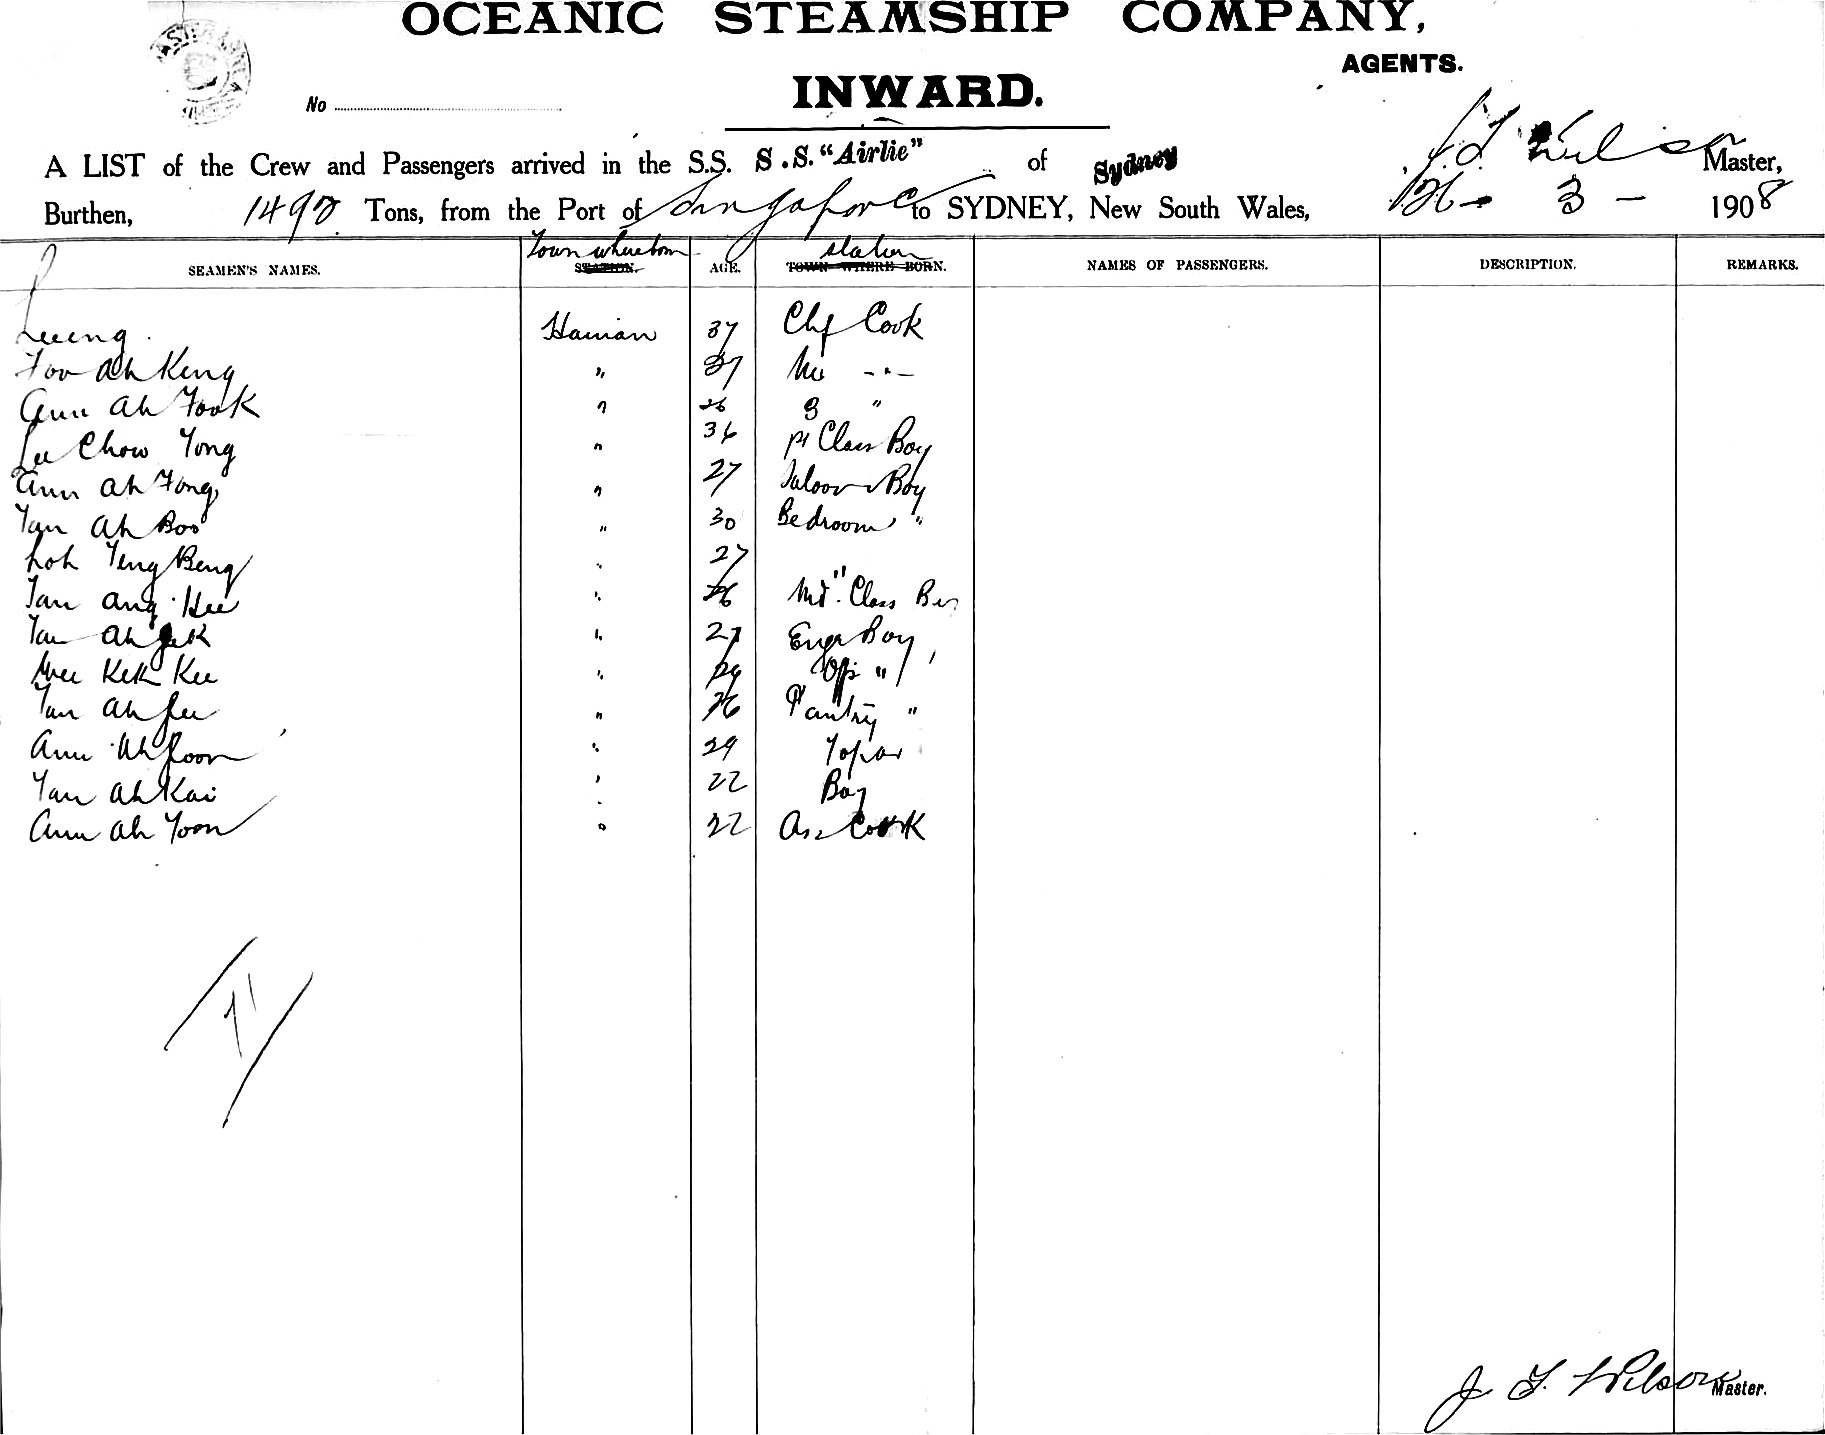 OCEANIC STEAMSHIP COMPANY,
AGENTS.
INWARD.
No
A LIST of the Crew and Passengers arrived in the S.S. S.S. "Airlie" of Sydney J. T. Wilson Master,
Burthen, 1492 Tons, from the Port of Singapore to SYDNEY, New South Wales, 3 - 1908
SEAMEN'S NAMES. Town where born STATION. AGE. station TOWN WHERE BORN. NAMES OF PASSENGERS. DESCRIPTION. REMARKS.
Hainan 37 Chf Cook
Foo Ah Keng " 37
Ann Ah Fook " 26 3 "
Lee Chow Yong " 36 Class Boy
Ann Ah Fong " 27 Saloon Boy
Tan Ah Boo " 30 Bedroom "
Loh Teng Beng " 27 "
Tan Ang Hee " 26 Class Boy
Tan Ah " 27 Engr Boy
Kek Kee " 29 "
Tan Ah " 26 Pantry "
Ann Ah " 29 Topas
Tan Ah Kai " 22 Boy
Ann Ah Yoon " 22 Ass Cook
J. T. Wilson Master.